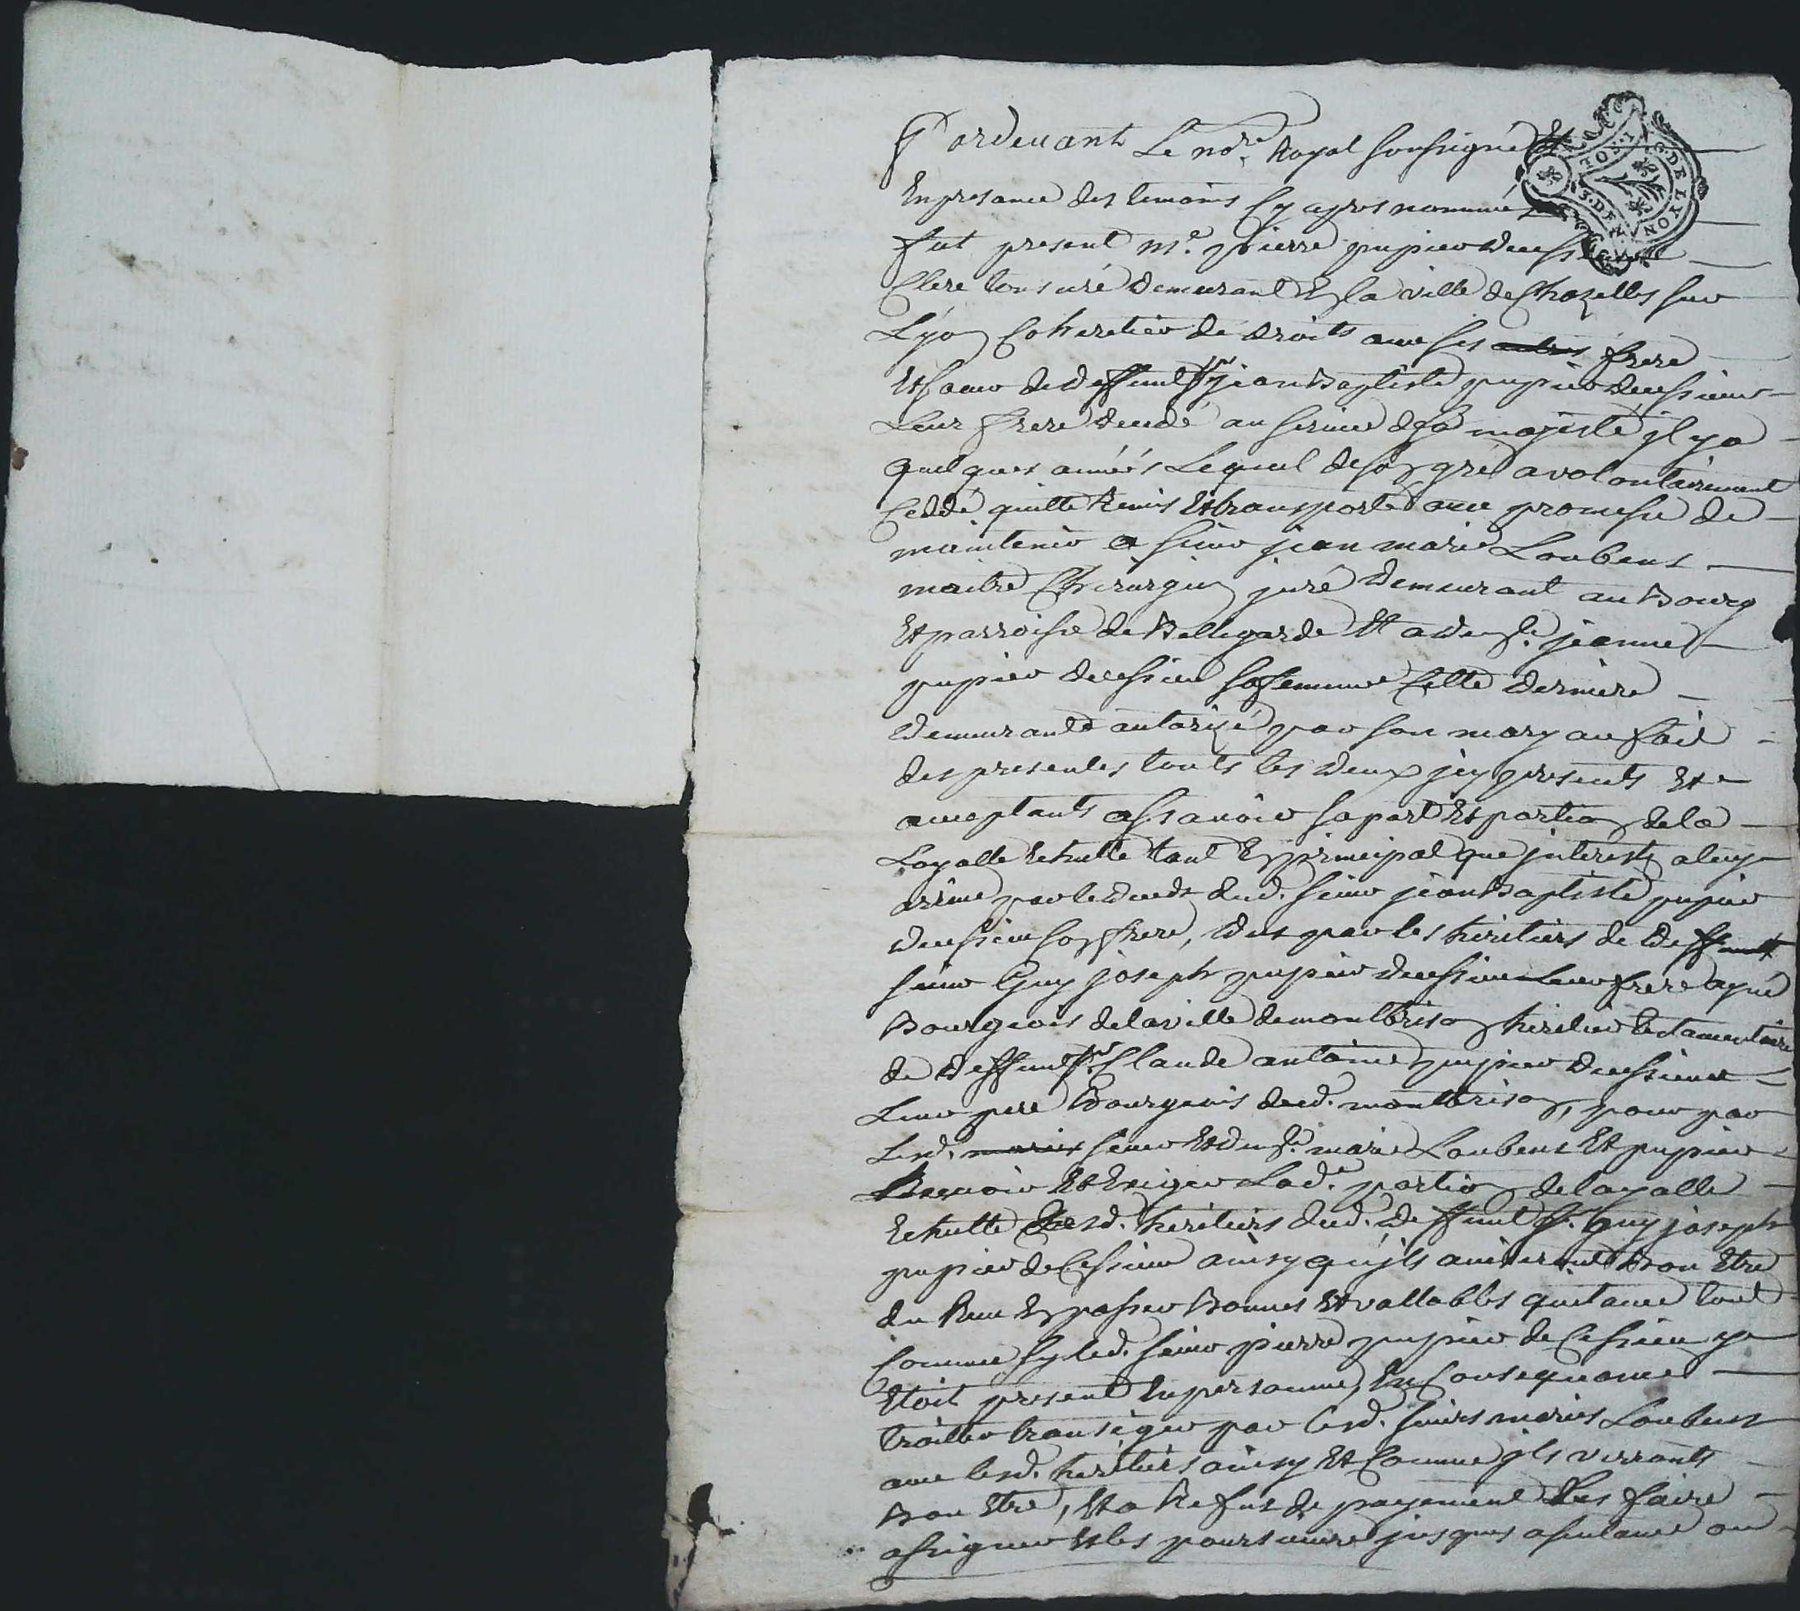 Pardevant Le no.re Royal soussigné Et
En presance des temoins Cy apres nommés
fut present m.e pierre pupier decessieu
Clerc tonsuré demeurant En la ville de Chazelles sur
Lyon Coheretier de droits avec ses autres frere
Et sœur de deffunt Sr jean Baptiste pupier decessieu
Leur frere decedé au service de sa majesté il y a
quelques années Lequel de son gré a volontairement
Ceddé quitté Remis Et transporté avec promesse de
maintenir a sieur jean marie Loubens
maitre Chirurgien juré demeurant au Bourg
Et parroisse de Bellegarde Et a de.lle jeanne
pupier decessieu sa femme Cette derniere
demeurant autorisé par son mary au fait
des presentes touts les deux icy presents Et
acceptants assavoir sa part Et portion de la
Loyalle Echutte tant En principal que interests a luy
par le deceds dud. sieur jean Baptiste pupier
decessieu son frere, dus par les heritiers de deffunt
sieur Guy joseph pupier decessieu Leur frere ayné
Bourgeois de la ville de montbrison heritier testamentaire
de deffunt Sr Claude antoine pupier decessieu
Leur pere Bourgeois dud. montbrison, pour par
Lesd. mariés sieur Et de.lle marie Loubens Et pupier
Recevoir Et Exiger Lad.e portion de loyalle
Echutte desd. heritiers dud. deffunt Sr Guy joseph
pupier de Cessieu ainsy qu'ils aviseront Bon Etre
du Receu En passer Bonnes Et vallables quitance tout
Comme sy led. sieur pierre pupier de Cessieu y
Etoit present En personne, En Consequance
traiter transiger par lesd. sieurs mariés Loubens
avec lesd. heritiers ainsy Et Comme ils verronts
Bon Etre, Et a Refus de payement Les faire
assigner Et les poursuivre jusques a sentance ou
G. DE LYON